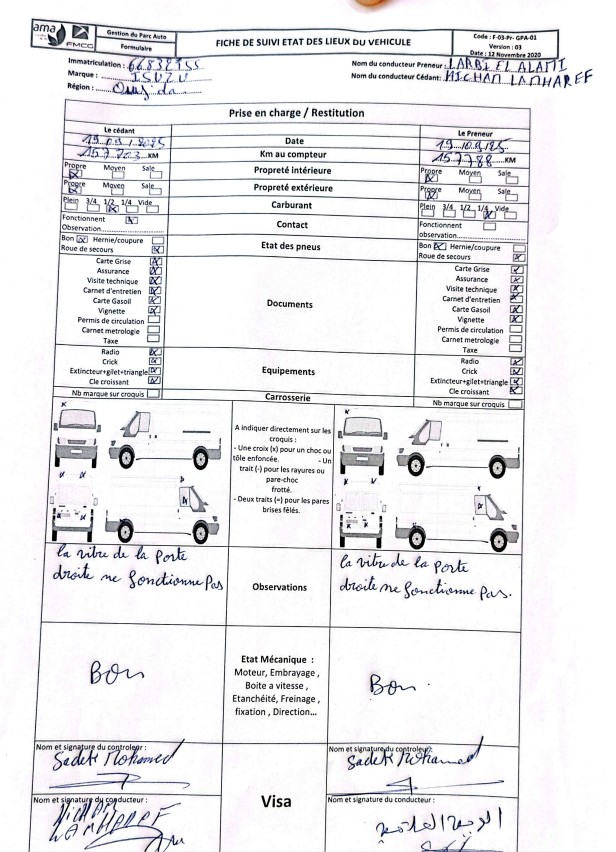 ama
FMCG
Gestion du Parc Auto
Formulaire
FICHE DE SUIVI ETAT DES LIEUX DU VEHICULE
Code : F-03-Pr- GPA-01
Version : 03
Date : 12 Novembre 2020
Immatriculation :
Nom du conducteur Preneur : LARBI EL ALAMI
Marque : ISUZU
Nom du conducteur Cédant : HICHAM LAMHAREF
Région : Oujda
Prise en charge / Restitution
Le cédant
Le Preneur
Date
157703 KM Km au compteur 157788 KM
Propre Moyen Sale Propreté intérieure Propre Moyen Sale
Propre Moyen Sale Propreté extérieure Propre Moyen Sale
Plein 3/4 1/2 1/4 Vide Carburant Plein 3/4 1/2 1/4 Vide
Fonctionnent Contact Fonctionnent
Observation observation
Bon Hernie/coupure Etat des pneus Bon Hernie/coupure
Roue de secours Roue de secours
Carte Grise Carte Grise
Assurance Assurance
Visite technique Visite technique
Carnet d'entretien Carnet d'entretien
Carte Gasoil Documents Carte Gasoil
Vignette Vignette
Permis de circulation Permis de circulation
Carnet metrologie Carnet metrologie
Taxe Taxe
Radio Radio
Crick Equipements Crick
Extincteur+gilet+triangle Extincteur+gilet+triangle
Cle croissant Cle croissant
Nb marque sur croquis Carrosserie Nb marque sur croquis
A indiquer directement sur les
croquis :
- Une croix (x) pour un choc ou
tôle enfoncée. - Un
trait (-) pour les rayures ou
pare-choc
frotté.
- Deux traits (=) pour les pares
brises fêlés.
la vitre de la porte
droite ne fonctionne pas
Observations
la vitre de la porte
droite ne fonctionne pas.
Bon
Etat Mécanique :
Moteur, Embrayage ,
Boite a vitesse ,
Etanchéité, Freinage ,
fixation , Direction...
Bon
Nom et signature du controleur :
Sadek Mohamed
Nom et signature du controleur:
Sadek Mohamed
Visa
Nom et signature du conducteur :
HICHAM
LAMHAREF
Nom et signature du conducteur :